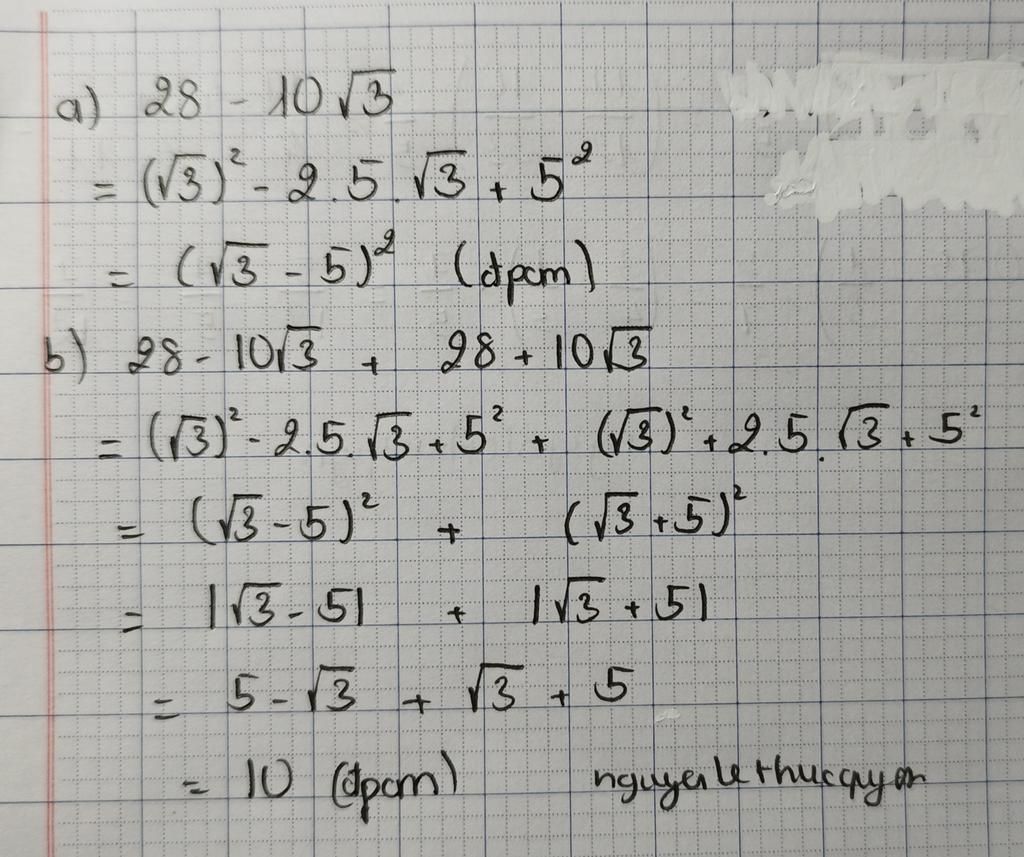 a) 28 - 10√3
= (√3)² - 2.5.√3 + 5²
= (√3 - 5)² (đpcm)
b) 28 - 10√3 + 28 + 10√3
= (√3)² - 2.5.√3 + 5² + (√3)² + 2.5.√3 + 5²
= (√3 - 5)² + (√3 + 5)²
= |√3 - 5| + |√3 + 5|
= 5 - √3 + √3 + 5
= 10 (đpcm) nguyenlethucquyen